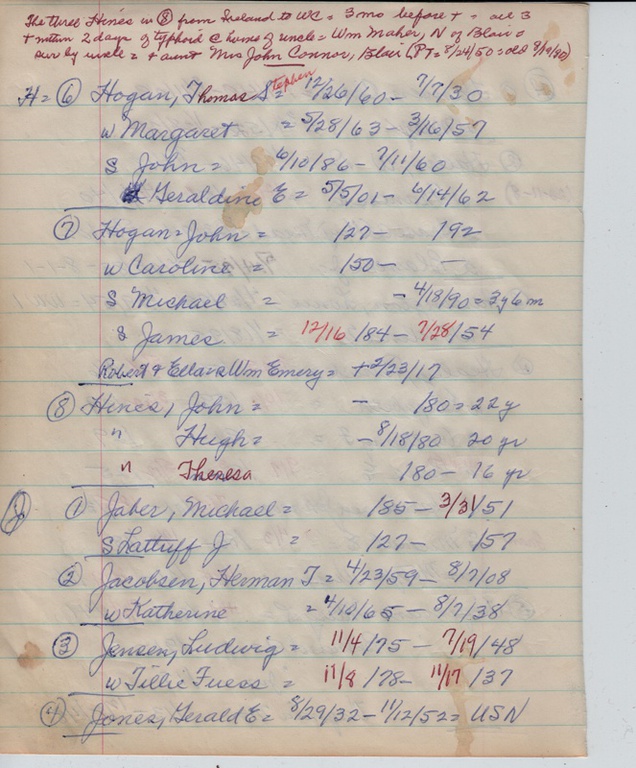 The three Hines in ⑧ from Ireland to WC = 3 mo before + = all 3
+ within 2 days of typhoid c home of uncle = Wm Maher, N of Blair =
sur by uncle = + aunt Mrs John Connor, Blair (PT = 8/24/50 = old 8/19/40)
H = ⑥ Hogan, Thomas Stephen = 12/26/60 - 7/7/30
w Margaret = 5/28/63 - 3/16/57
S John = 6/10/86 - 7/11/60
Geraldine E = 5/5/01 - 6/14/62
⑦ Hogan = John = /27 - /92
w Caroline = /50 - -
S Michael = - 4/18/90 = 3y 6m
S James = 12/16/84 - 7/28/54
Robert & Ella = s Wm Emery = + 2/23/17
⑧ Hines, John = - /80 = 22y
" Hugh = - 8/18/80 20 yr
" Theresa 180 - 16 yr
J ① Jaber, Michael = /85 - 3/31/51
S Lattuff J = /27 - /57
② Jacobsen, Herman T = 4/23/59 - 8/7/08
w Katherine = 4/10/65 - 8/7/38
③ Jensen, Ludwig = 11/4/75 - 7/19/48
w Tillie Fuess = 11/8/78 - 11/17/37
④ Jones, Gerald E = 8/29/32 - 11/12/52 = USN